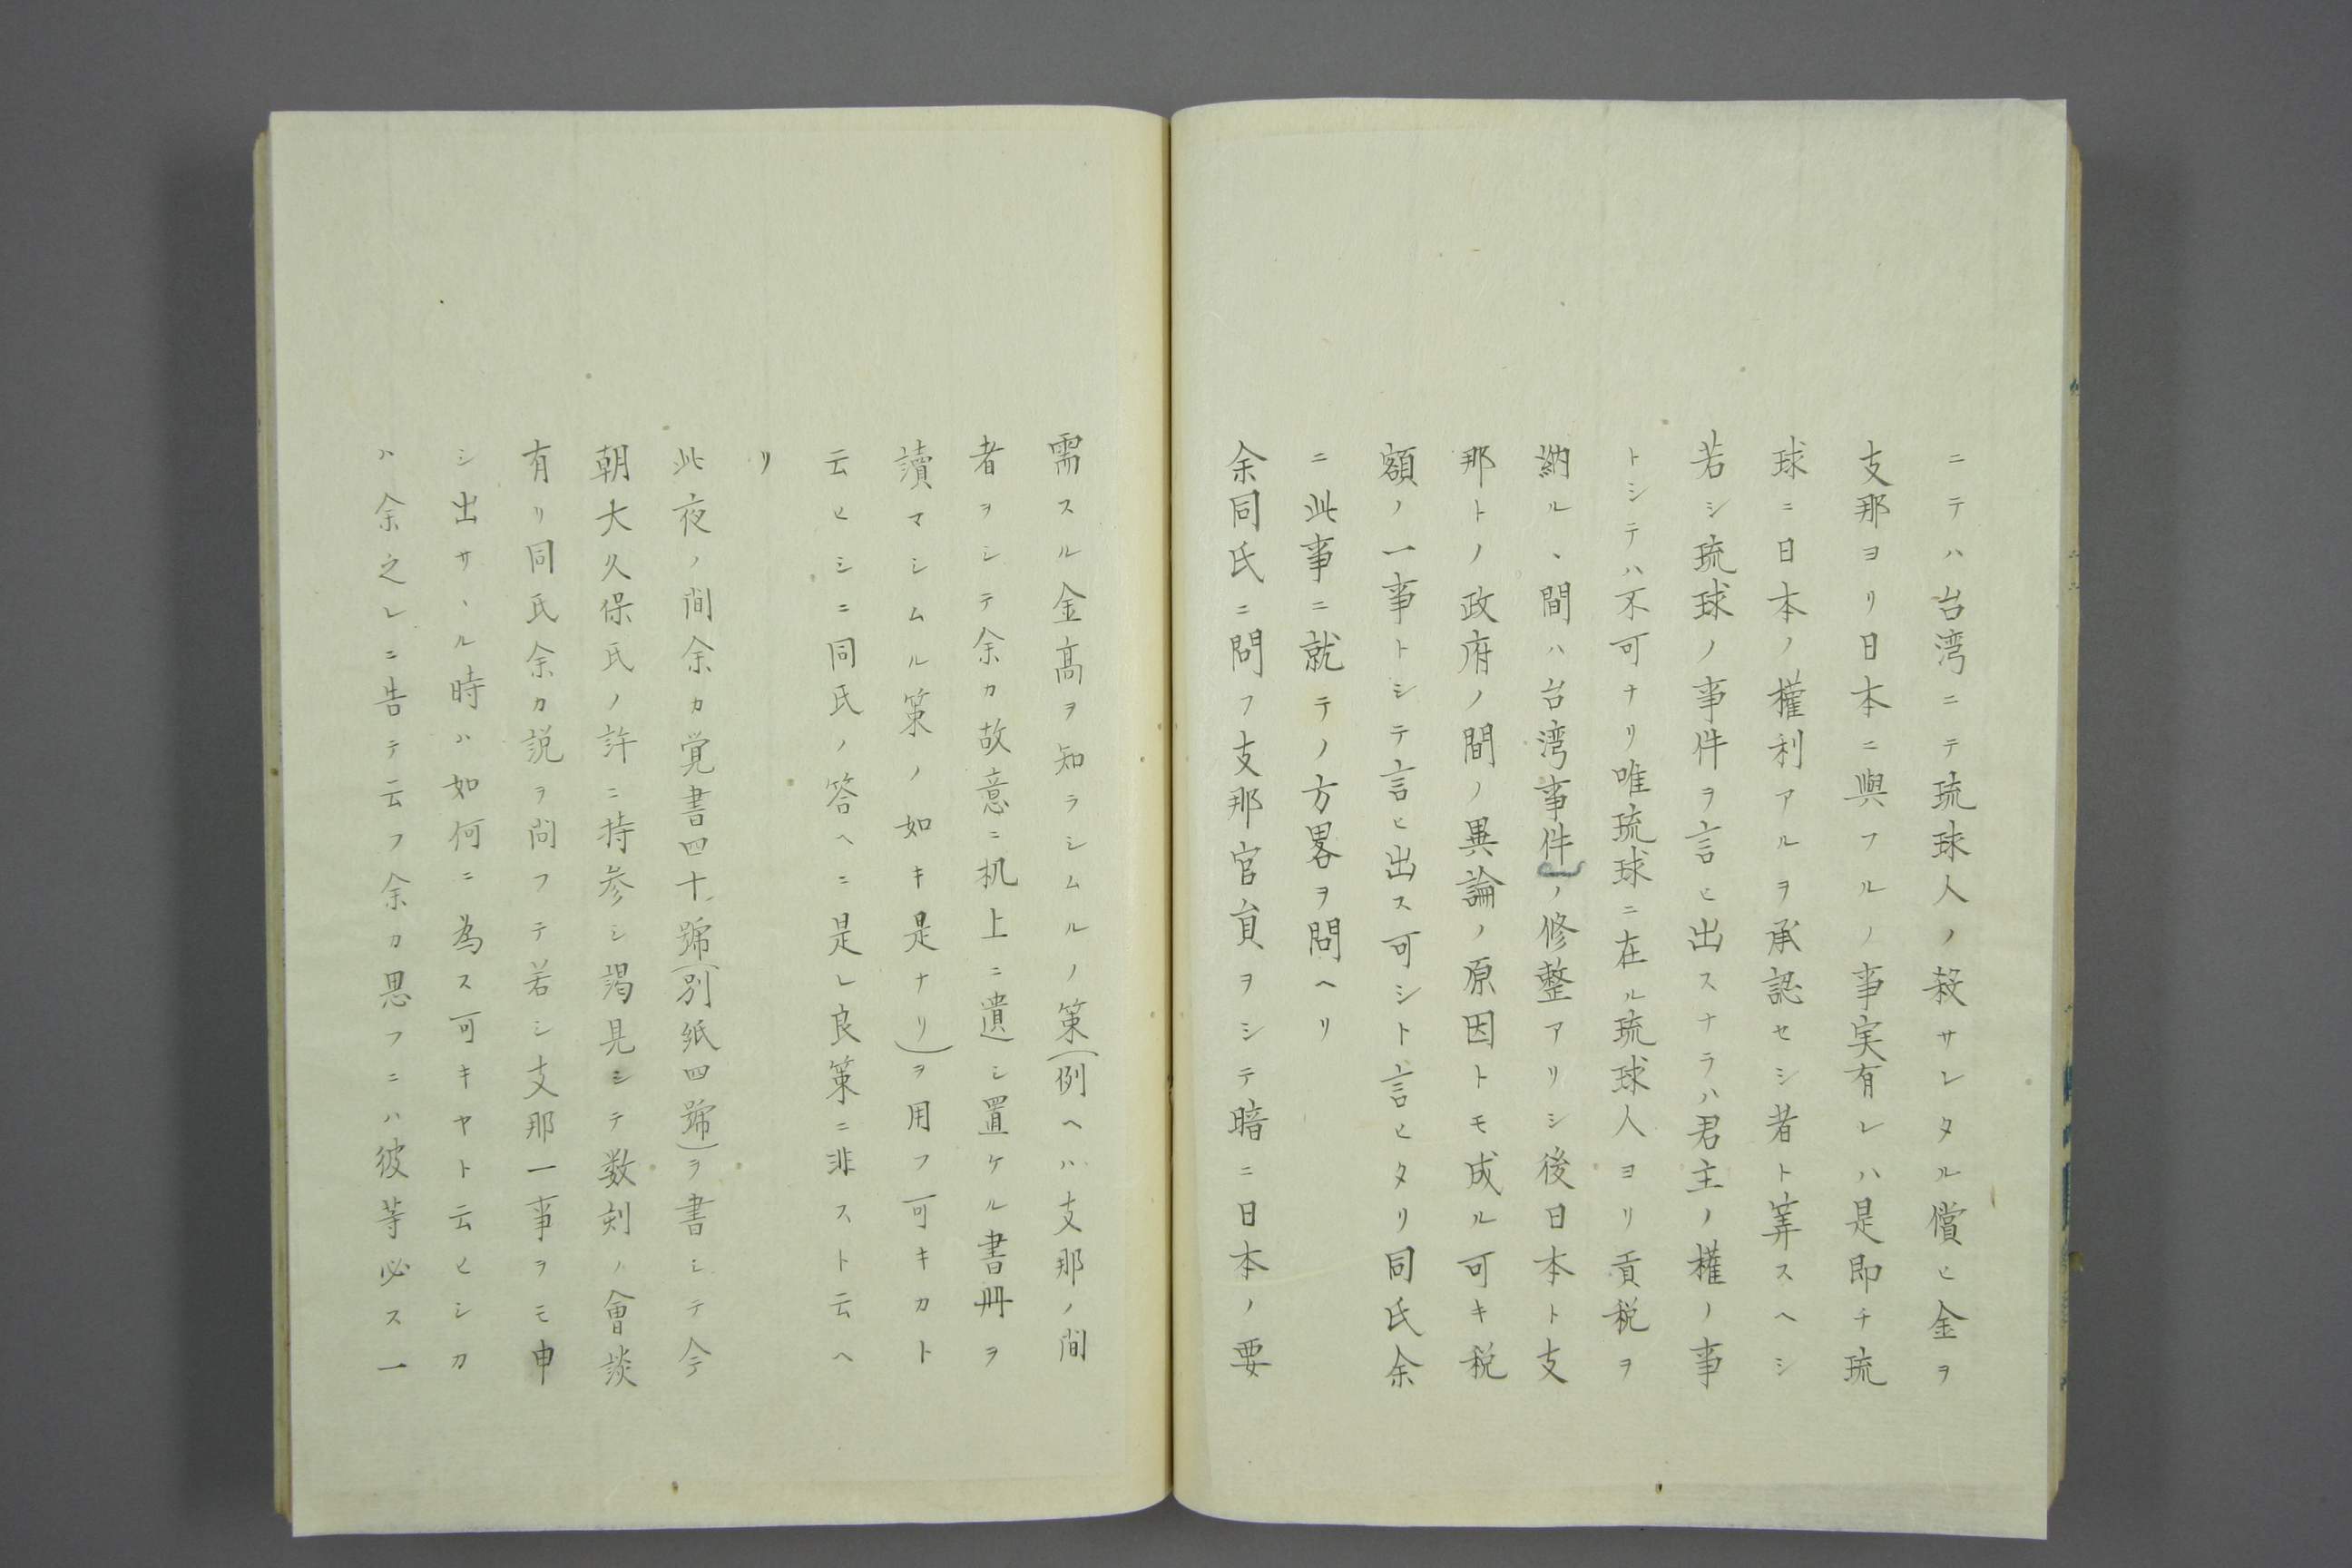 ニテハ台湾ニテ琉球人ノ殺サレタル償ヒ金ヲ
支那ヨリ日本ニ與フルノ事実有レハ是即チ琉
球ニ日本ノ權利アルヲ承認セシ者ト筭スヘシ
若シ琉球ノ事件ヲ言ヒ出スナラハ君主ノ權ノ事
トシテハ不可ナリ唯琉球ニ在ル琉球人ヨリ貢税ヲ
納ル、間ハ台湾事件ノ修整アリシ後日本ト支
那トノ政府ノ間ノ異論ノ原因トモ成ル可キ税
額ノ一事トシテ言ヒ出ス可シト言ヒタリ同氏余
ニ此事ニ就テノ方畧ヲ問ヘリ
余同氏ニ問フ支那官員ヲシテ暗ニ日本ノ要
需スル金高ヲ知ラシムルノ策(例ヘハ支那ノ間
者ヲシテ余カ故意ニ机上ニ遺シ置ケル書冊ヲ
讀マシムル策ノ如キ是ナリ)ヲ用フ可キカト
云ヒシニ同氏ノ答ヘニ是レ良策ニ非スト云ヘ
リ
此夜ノ間余カ覚書四十號(別紙四號)ヲ書シテ今
朝大久保氏ノ許ニ持参シ謁見シテ数刻ノ會談
有リ同氏余カ説ヲ問フテ若シ支那一事ヲモ申
シ出サ、ル時ハ如何ニ為ス可キヤト云ヒシカ
ハ余之レニ告テ云フ余カ思フニハ彼等必ス一